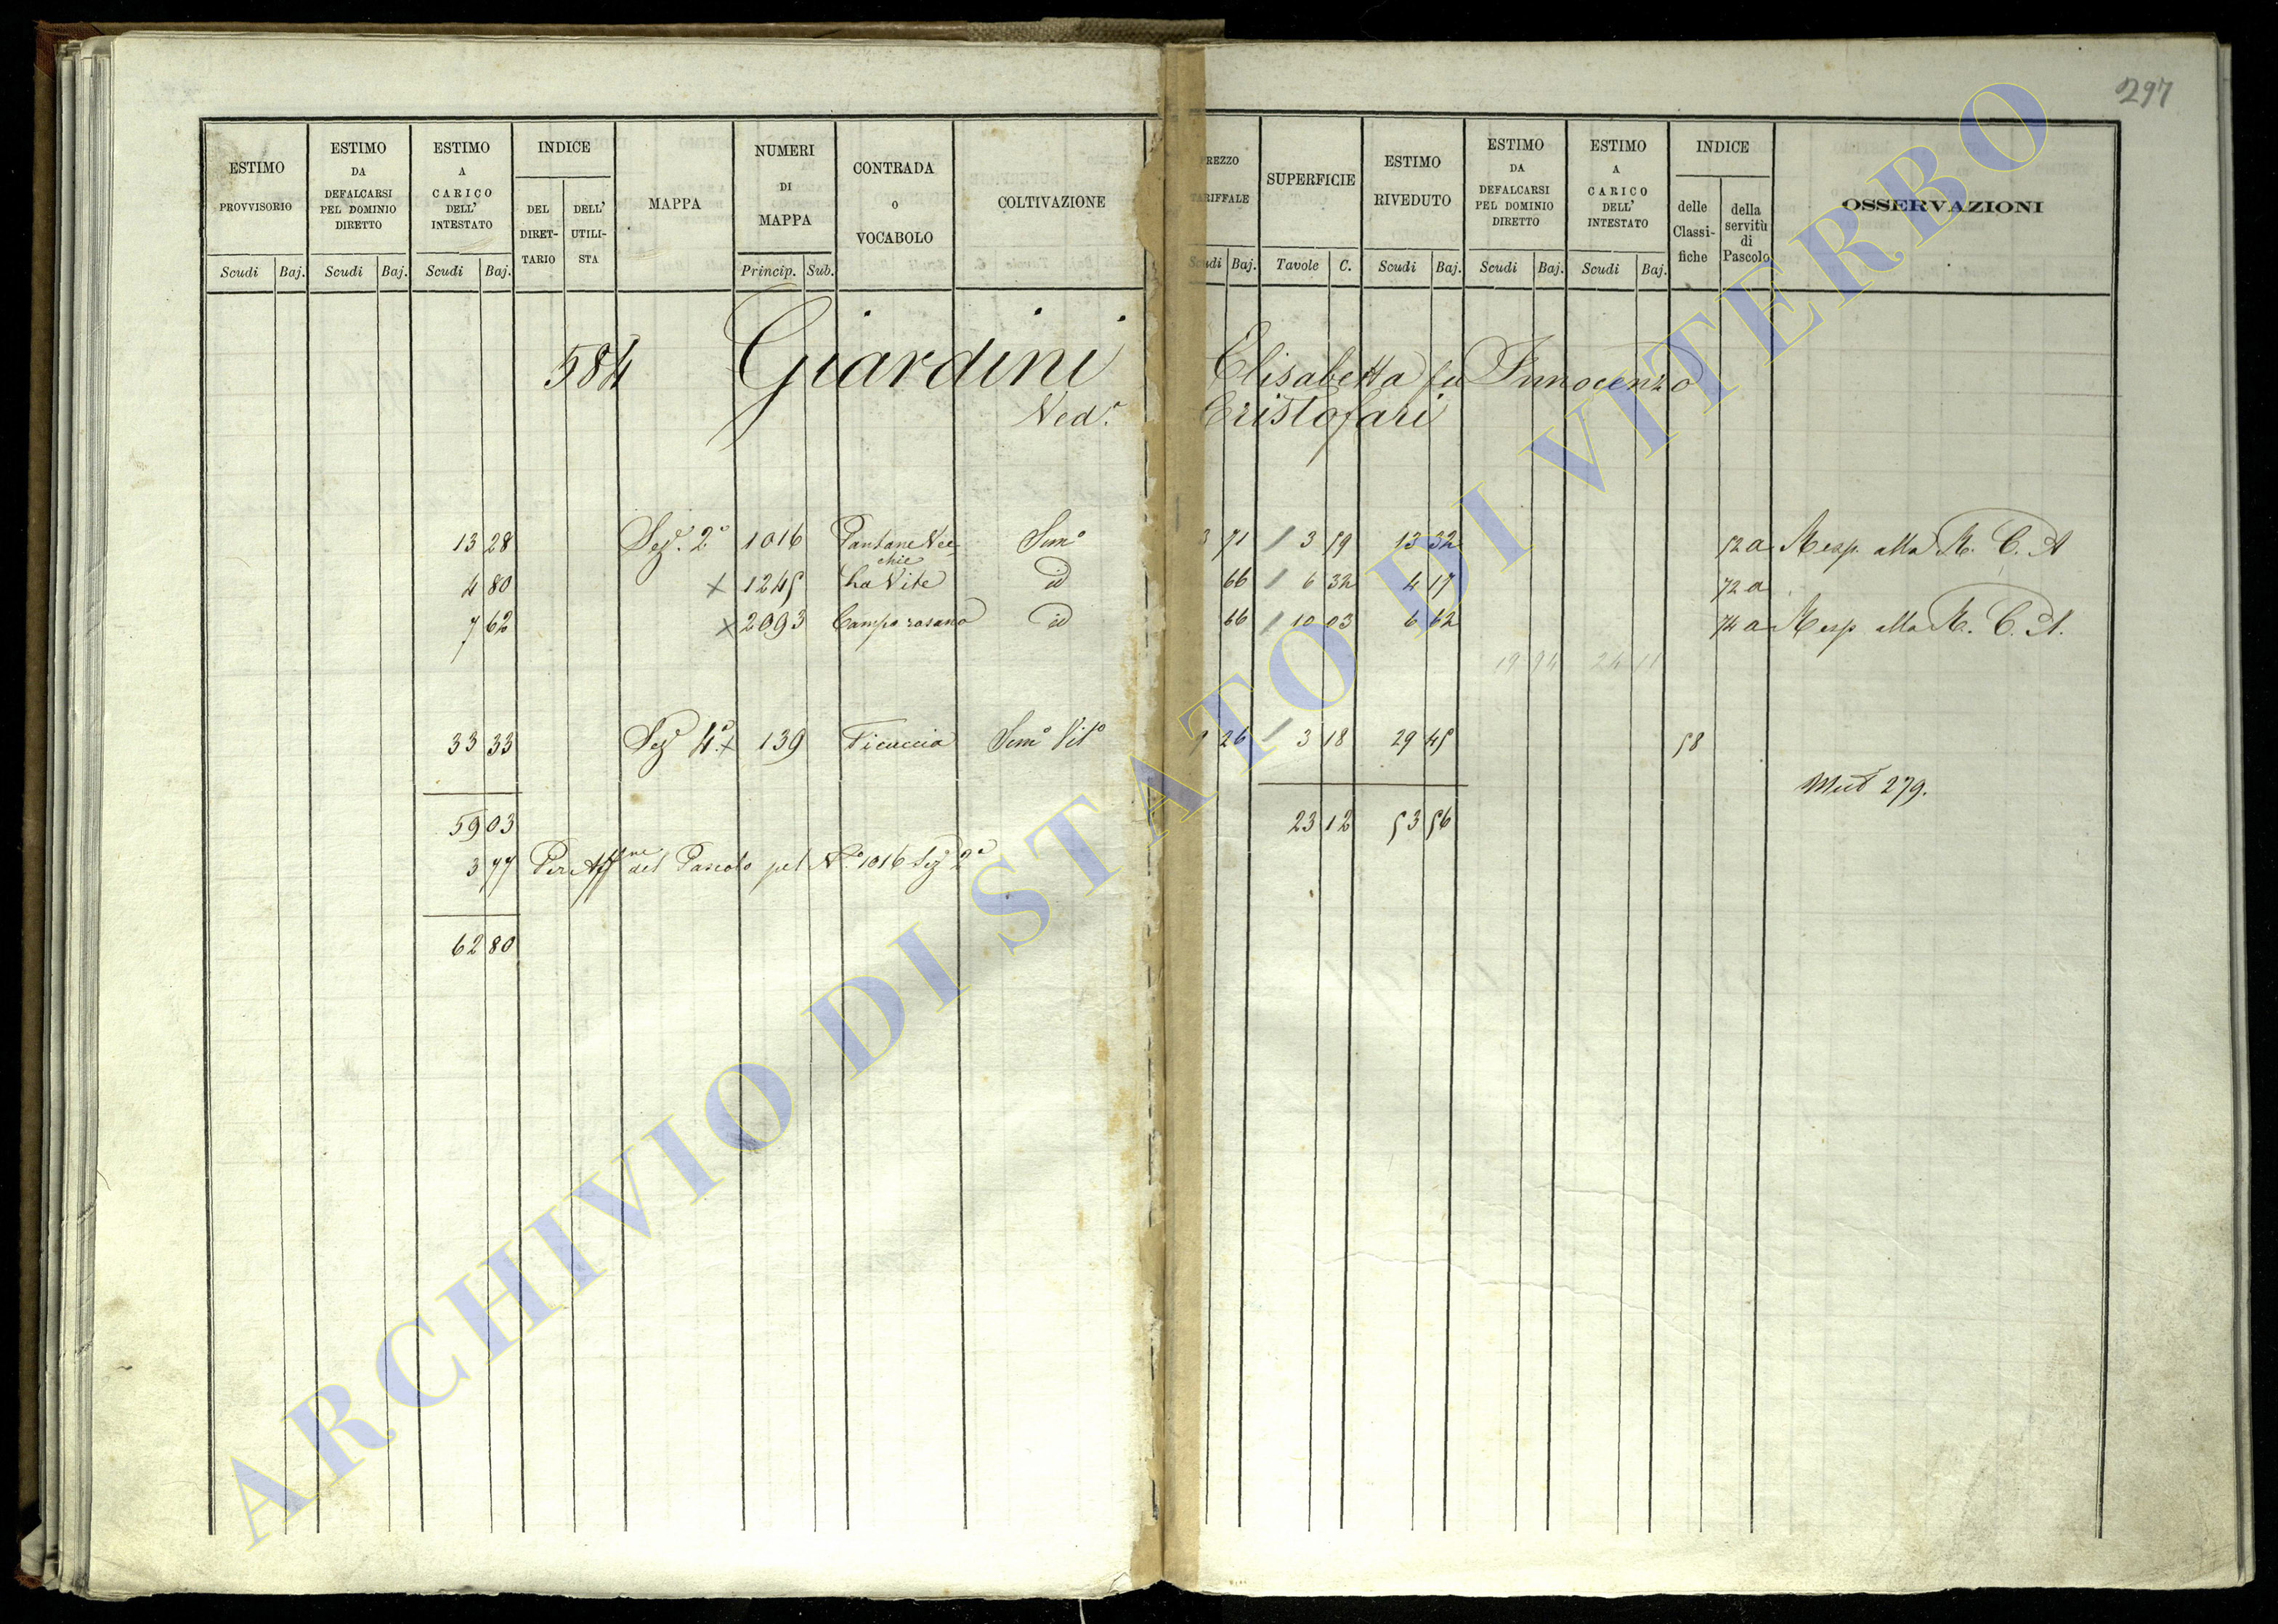 297
ESTIMO PROVVISORIO
ESTIMO DA DEFALCARSI PEL DOMINIO DIRETTO
ESTIMO A CARICO DELL' INTESTATO
INDICE
DEL DIRET-TARIO
DELL' UTILI-STA
MAPPA
NUMERI DI MAPPA
CONTRADA O VOCABOLO
COLTIVAZIONE
PREZZO TARIFFALE
SUPERFICIE
ESTIMO RIVEDUTO
ESTIMO DA DEFALCARSI PEL DOMINIO DIRETTO
ESTIMO A CARICO DELL' INTESTATO
INDICE
delle Classi-fiche
della servitù di Pascolo
OSSERVAZIONI
Scudi Baj. Scudi Baj. Scudi Baj. Princip. Sub. Scudi Baj. Tavole C. Scudi Baj. Scudi Baj. Scudi Baj.
584 Giardini Elisabetta fu Innocenzo
Ved.ᵃ Cristofari
13 28 Sezᵉ. 2ᵃ 1016 Pantane Vec Semᵒ 3 71 3 59 13 32 72 a Resp. alla R. C. A
chie
4 80 x 1245 La Vite id 66 6 32 4 17 72 a
7 62 x 2093 Campo rosano id 66 10 03 6 62 74 a Resp alla R. C. A.
19 94 24 11
33 33 Sezᵉ 4ᵃ. x 139 Ficuccia Semᵒ Vitᵒ 9 26 3 18 29 45 58
Mut 279.
59 03 23 12 53 56
3 77 Per Affⁿᵉ del Pascolo pel Nᵒ. 1016 Sezᵉ 2ᵃ
62 80
ARCHIVIO DI STATO DI VITERBO